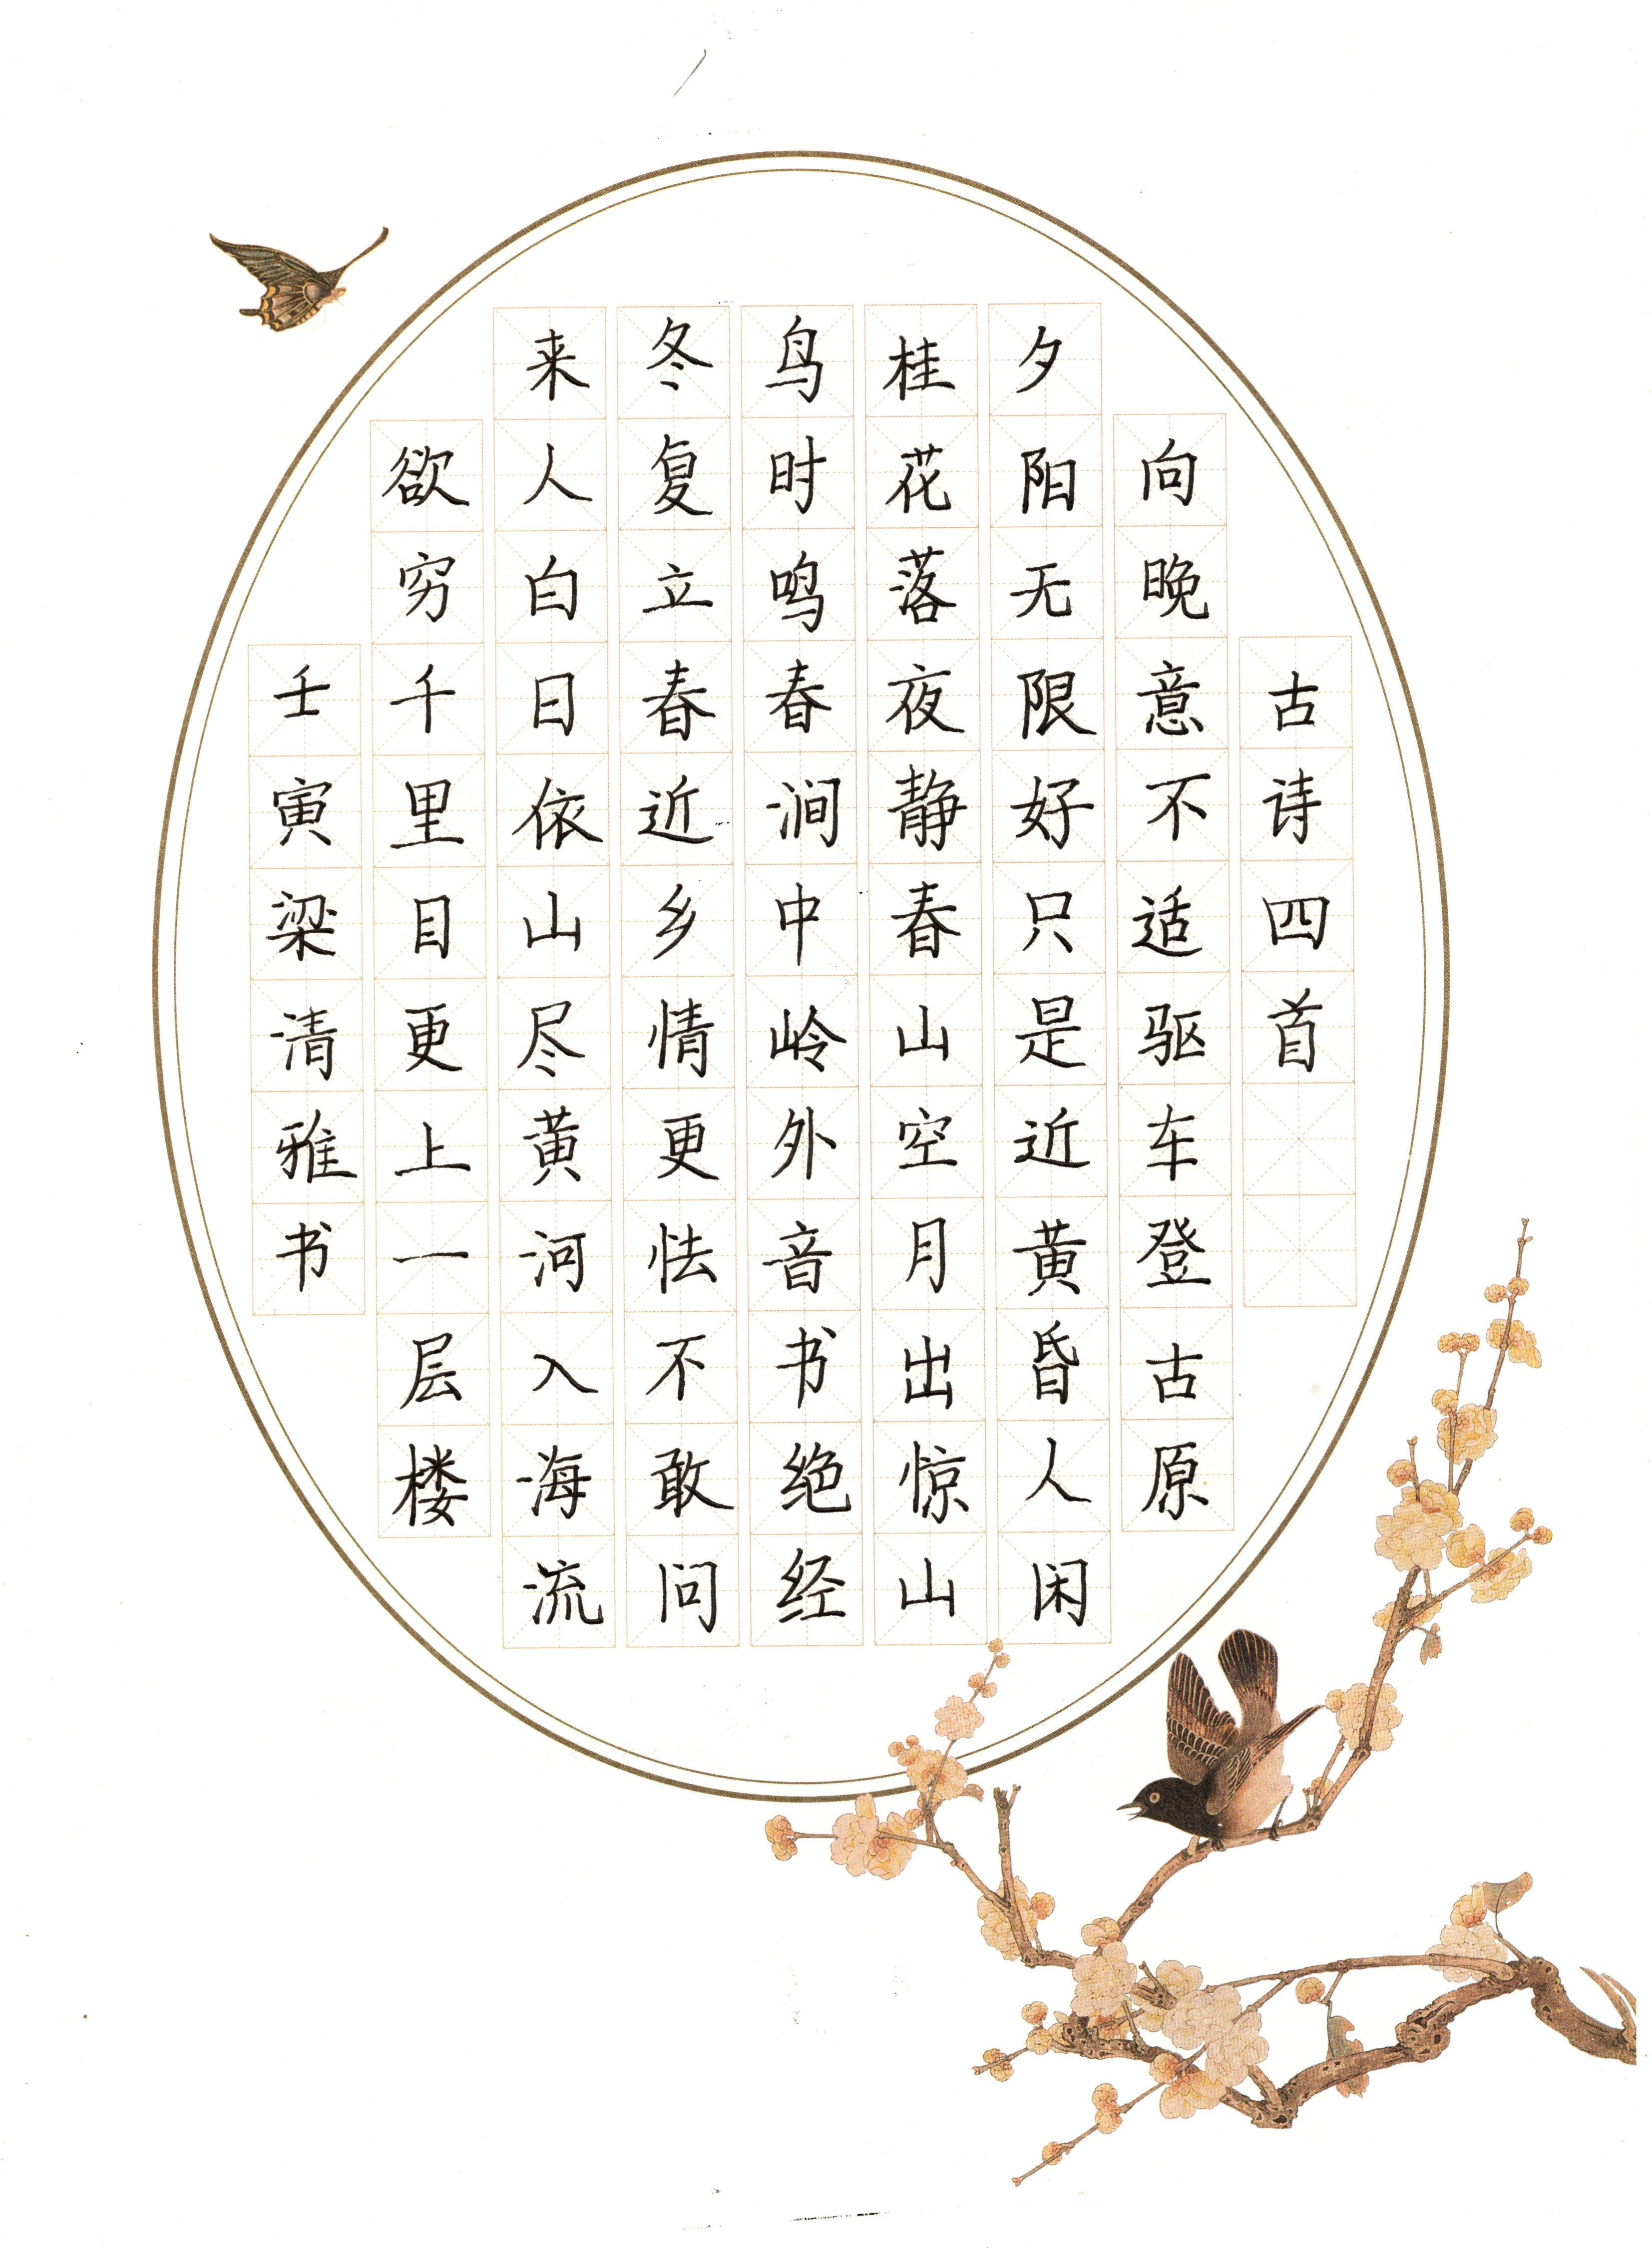 古诗四首
向晚意不适驱车登古原
夕阳无限好只是近黄昏人闲
桂花落夜静春山空月出惊山
鸟时鸣春涧中岭外音书绝经
冬复立春近乡情更怯不敢问
来人白日依山尽黄河入海流
欲穷千里目更上一层楼
壬寅梁清雅书